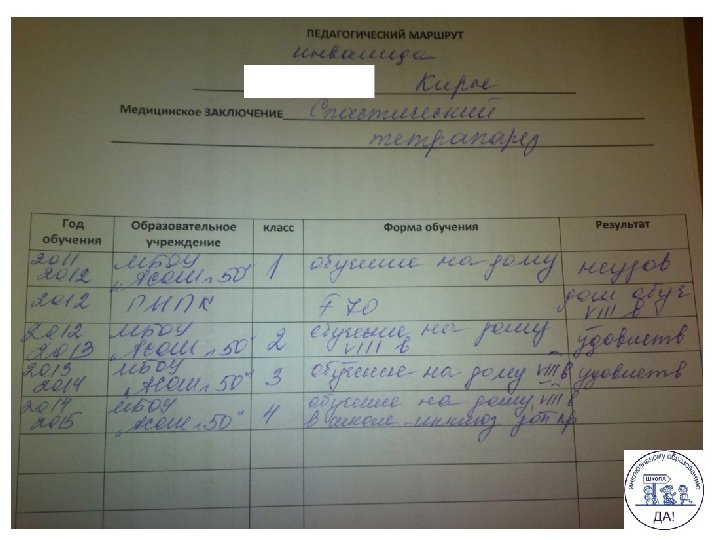 ПЕДАГОГИЧЕСКИЙ МАРШРУТ
инвалида
Кирье
Медицинское ЗАКЛЮЧЕНИЕ Спастический
тетрапарез
Год обучения Образовательное учреждение класс Форма обучения Результат
2011 2012 МБОУ „АСОШ№50" 1 обучение на дому неудов
2012 РМПК F 70 дом обуч VIII в
2012 2013 МБОУ „АСОШ№50" 2 обучение на дому VIII в удовлетв
2013 2014 МБОУ „АСОШ№50" 3 обучение на дому VIII в удовлетв
2014 2015 МБОУ „АСОШ№50" 4 обучение на дому VIII в
в школе инклюз доп пр
инклюзивному образованию
ШКОЛА
ДА!